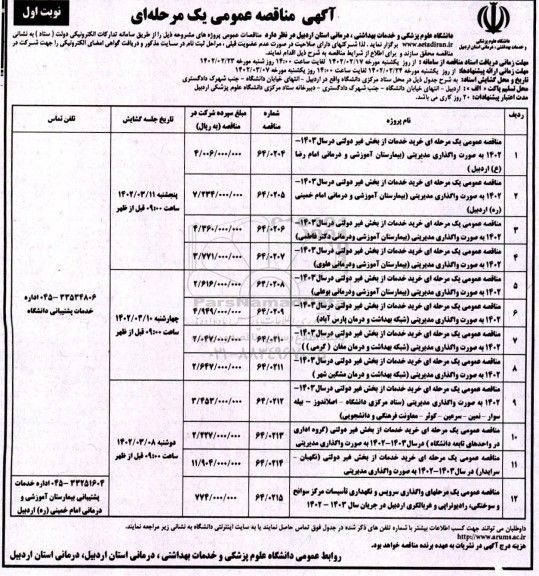 آگهی مناقصه عمومی یک مرحله‌ای
نوبت اول
دانشگاه علوم پزشکی و خدمات بهداشتی ، درمانی استان اردبیل در نظر دارد مناقصات عمومی پروژه های مشروحه ذیل را از طریق سامانه تدارکات الکترونیکی دولت ( ستاد ) به نشانی
www.setadiran.ir برگزار نماید. لذا شرکتهای دارای صلاحیت در صورت عدم عضویت قبلی ، مراحل ثبت نام در سایت مذکور و دریافت گواهی امضای الکترونیکی را جهت شرکت در
مناقصه محقق سازند و برای اطلاع از شرایط مناقصه به شرح ذیل اقدام نمایند.
مهلت زمانی دریافت اسناد مناقصه از سامانه : از روز یکشنبه مورخه ۱۴۰۲/۰۲/۱۷ لغایت ساعت ۱۴:۰۰ روز شنبه مورخه ۱۴۰۲/۰۲/۲۳
مهلت زمانی ارائه پیشنهادها: از روز یکشنبه مورخه ۱۴۰۲/۰۲/۲۴ لغایت ساعت ۱۴:۰۰ روز یکشنبه مورخه ۱۴۰۲/۰۳/۰۷
تاریخ و محل گشایش اسناد: به شرح جدول ذیل در محل ستاد مرکزی دانشگاه واقع در اردبیل - انتهای خیابان دانشگاه - جنب شهرک دادگستری
محل تسلیم پاکت « الف » : اردبیل - انتهای خیابان دانشگاه - جنب شهرک دادگستری - دبیرخانه ستاد مرکزی دانشگاه علوم پزشکی اردبیل
مدت اعتبار پیشنهادات: ۲۰ روز کاری می باشد.
ردیف نام پروژه شماره مناقصه مبلغ سپرده شرکت در مناقصه (به ریال) تاریخ جلسه گشایش تلفن تماس
۱ مناقصه عمومی یک مرحله ای خرید خدمات از بخش غیر دولتی درسال۱۴۰۳-۱۴۰۲ به صورت واگذاری مدیریتی (بیمارستان آموزشی و درمانی امام رضا (ع) اردبیل) ۶۴/۰۲۰۴ ۴/۰۰۶/۰۰۰/۰۰۰
۲ مناقصه عمومی یک مرحله ای خرید خدمات از بخش غیر دولتی درسال۱۴۰۳-۱۴۰۲ به صورت واگذاری مدیریتی (بیمارستان آموزشی و درمانی امام خمینی (ره) اردبیل) ۶۴/۰۲۰۵ ۷/۲۳۴/۰۰۰/۰۰۰
پنجشنبه ۱۴۰۲/۰۳/۱۱
ساعت ۰۹:۰۰ قبل از ظهر
۳ مناقصه عمومی یک مرحله ای خرید خدمات از بخش غیر دولتی درسال۱۴۰۳-۱۴۰۲ به صورت واگذاری مدیریتی (بیمارستان آموزشی ودرمانی دکتر فاطمی) ۶۴/۰۲۰۶ ۴/۳۶۰/۰۰۰/۰۰۰
۴ مناقصه عمومی یک مرحله ای خرید خدمات از بخش غیر دولتی درسال۱۴۰۳-۱۴۰۲ به صورت واگذاری مدیریتی (بیمارستان آموزشی ودرمانی علوی) ۶۴/۰۲۰۷ ۳/۷۷۱/۰۰۰/۰۰۰
۵ مناقصه عمومی یک مرحله ای خرید خدمات از بخش غیر دولتی درسال۱۴۰۳-۱۴۰۲ به صورت واگذاری مدیریتی (بیمارستان آموزشی ودرمانی بوعلی) ۶۴/۰۲۰۸ ۲/۶۱۶/۰۰۰/۰۰۰
۰۴۵- ۳۳۵۳۴۸۰۶ اداره
خدمات پشتیبانی دانشگاه
۶ مناقصه عمومی یک مرحله ای خرید خدمات از بخش غیر دولتی درسال۱۴۰۳-۱۴۰۲ به صورت واگذاری مدیریتی (شبکه بهداشت و درمان پارس آباد) ۶۴/۰۲۰۹ ۴/۹۴۹/۰۰۰/۰۰۰
چهارشنبه ۱۴۰۲/۰۳/۱۰
ساعت ۰۹:۰۰ قبل از ظهر
۷ مناقصه عمومی یک مرحله ای خرید خدمات از بخش غیر دولتی درسال۱۴۰۳-۱۴۰۲ به صورت واگذاری مدیریتی (شبکه بهداشت و درمان مغان ( گرمی )) ۶۴/۰۲۱۰ ۲/۰۴۷/۰۰۰/۰۰۰
۸ مناقصه عمومی یک مرحله ای خرید خدمات از بخش غیر دولتی درسال۱۴۰۳-۱۴۰۲ به صورت واگذاری مدیریتی (شبکه بهداشت و درمان مشگین شهر ) ۶۴/۰۲۱۱ ۲/۶۴۷/۰۰۰/۰۰۰
۹ مناقصه عمومی یک مرحله ای خرید خدمات از بخش غیر دولتی درسال۱۴۰۳-۱۴۰۲ به صورت واگذاری مدیریتی (ستاد مرکزی دانشگاه - اصلاندوز - بیله سوار - نمین - سرعین - کوثر - معاونت فرهنگی و دانشجویی) ۶۴/۰۲۱۲ ۳/۴۵۳/۰۰۰/۰۰۰
۱۰ مناقصه عمومی یک مرحله ای خرید خدمات از بخش غیر دولتی (گروه اداری در واحدهای تابعه دانشگاه ) درسال۱۴۰۳-۱۴۰۲ به صورت واگذاری مدیریتی ۶۴/۰۲۱۳ ۲/۲۲۷/۰۰۰/۰۰۰
دوشنبه ۱۴۰۲/۰۳/۰۸
ساعت ۰۹:۰۰ قبل از ظهر
۱۱ مناقصه عمومی یک مرحله ای خرید خدمات از بخش غیر دولتی (نگهبان - سرایدار) در سال۱۴۰۳-۱۴۰۲ به صورت واگذاری مدیریتی ۶۴/۰۲۱۴ ۱۱/۹۰۴/۰۰۰/۰۰۰
۱۲ مناقصه عمومی یک مرحلهای واگذاری سرویس و نگهداری تأسیسات مرکز سوانح و سوختگی، رادیوتراپی و غربالگری اردبیل در جریان سال ۱۴۰۳ - ۱۴۰۲ ۶۴/۰۲۱۵ ۷۷۴/۰۰۰/۰۰۰
۰۴۵- ۳۳۲۵۱۶۰۴ اداره خدمات
پشتیبانی بیمارستان آموزشی و
درمانی امام خمینی (ره) اردبیل
داوطلبان می توانند جهت کسب اطلاعات بیشتر با شماره تلفن های ذکر شده در جدول فوق تماس حاصل نمایند یا به سایت اینترنتی دانشگاه به نشانی زیر مراجعه نمایند.
http://www.arums.ac.ir
هزینه درج آگهی در نشریات به عهده برنده مناقصه خواهد بود.
روابط عمومی دانشگاه علوم پزشکی و خدمات بهداشتی ، درمانی استان اردبیل، درمانی استان اردبیل